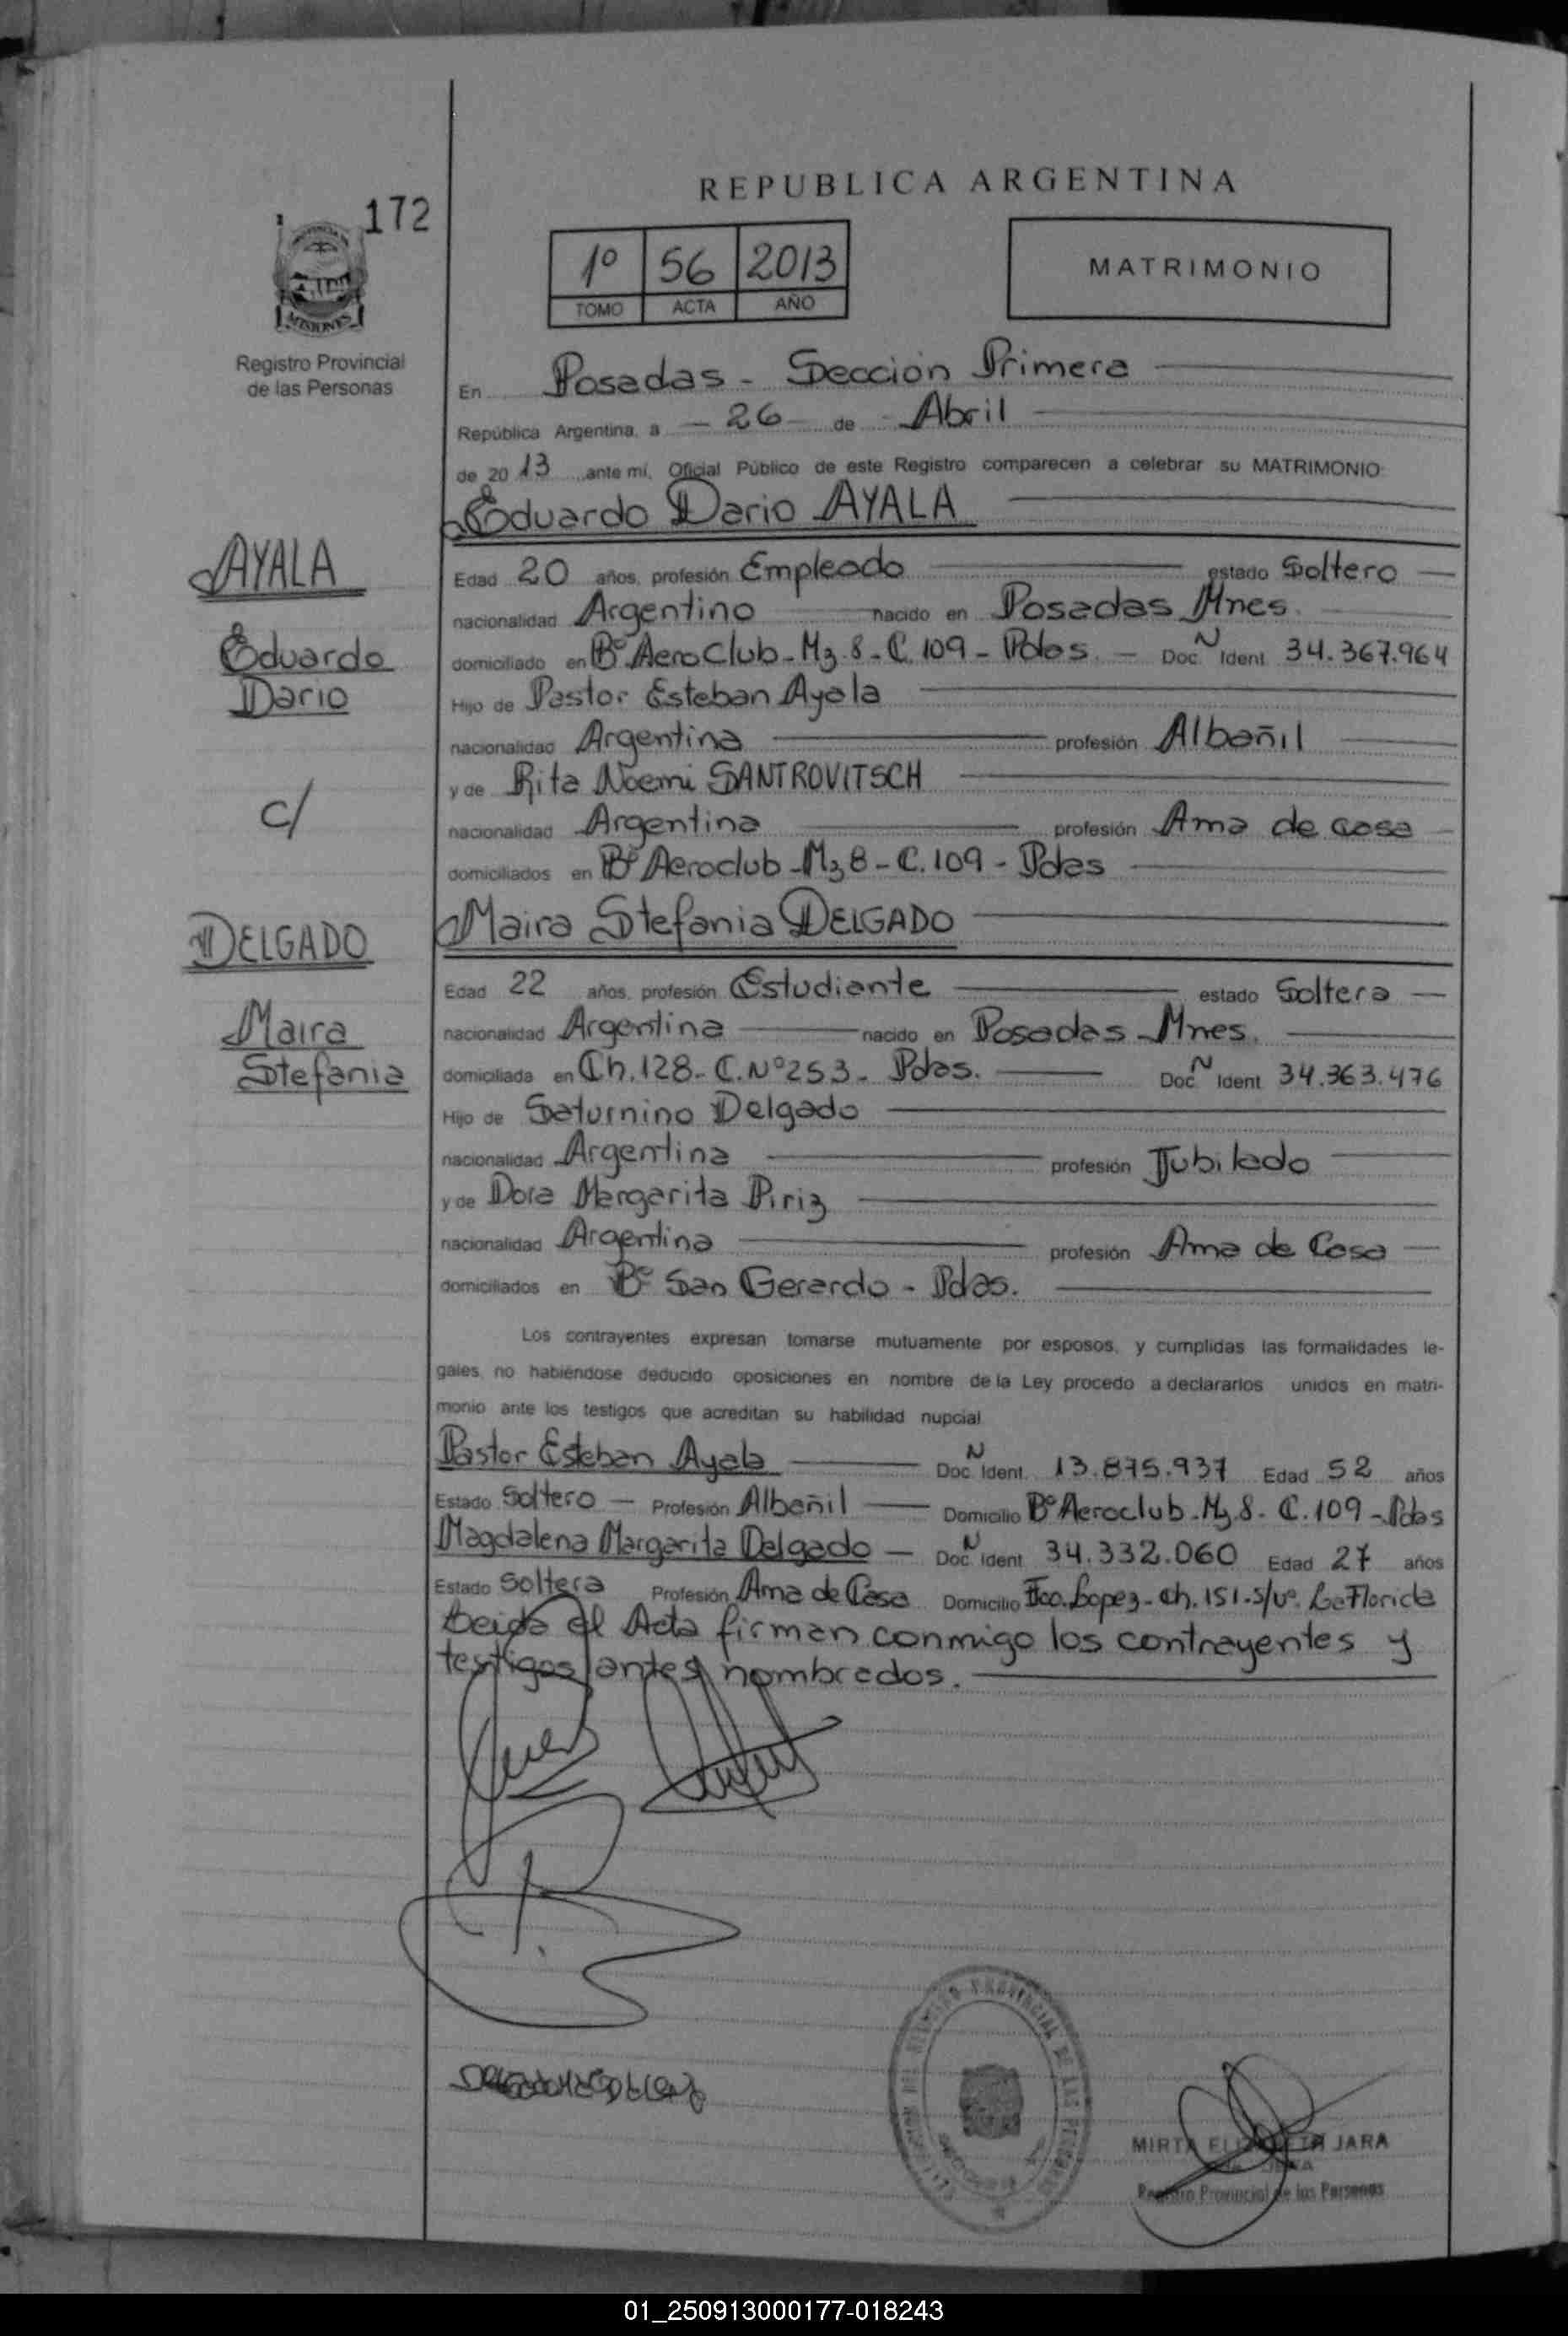 172
PROVINCIA DE
MISIONES
Registro Provincial
de las Personas
REPUBLICA ARGENTINA
1º 56 2013
TOMO ACTA AÑO
MATRIMONIO
En Posadas - Sección Primera
República Argentina, a - 26 - de Abril
de 2013 ante mi, Oficial Público de este Registro comparecen a celebrar su MATRIMONIO:
Eduardo Dario AYALA
AYALA
Eduardo
Dario
c/
DELGADO
Maira
Stefania
Edad 20 años, profesión Empleado estado Soltero
nacionalidad Argentino nacido en Posadas Mnes.
domiciliado en Bº AeroClub - Mz 8 - C. 109 - Pdas. - Doc. N Ident 34.367.964
Hijo de Pastor Esteban Ayala
nacionalidad Argentina profesión Albañil
y de Rita Noemi SANTROVITSCH
nacionalidad Argentina profesión Ama de casa
domiciliados en Bº Aeroclub - Mz 8 - C. 109 - Pdas
Maira Stefania DELGADO
Edad 22 años, profesión Estudiante estado Soltera
nacionalidad Argentina nacido en Posadas - Mnes.
domiciliada en Ch. 128 - C. Nº 253 - Pdas. Doc. N Ident 34.363.476
Hijo de Saturnino Delgado
nacionalidad Argentina profesión Jubilado
y de Dora Margarita Piriz
nacionalidad Argentina profesión Ama de Casa
domiciliados en Bº San Gerardo - Pdas.
Los contrayentes expresan tomarse mutuamente por esposos, y cumplidas las formalidades le-
gales, no habiéndose deducido oposiciones en nombre de la Ley procedo a declararlos unidos en matri-
monio ante los testigos que acreditan su habilidad nupcial
Pastor Esteban Ayala Doc. N Ident. 13.875.937 Edad 52 años
Estado Soltero - Profesión Albañil Domicilio Bº Aeroclub - Mz 8 - C. 109 - Pdas
Magdalena Margarita Delgado - Doc. N Ident 34.332.060 Edad 27 años
Estado Soltera Profesión Ama de Casa Domicilio Fco. Lopez - Ch. 151 - S/Nº La Florida
Leida el Acta firman conmigo los contrayentes y
testigos antes nombrados.
REGISTRO PROVINCIAL DE LAS PERSONAS
MIRTA ELIZABETH JARA
Registro Provincial de las Personas
01_250913000177-018243